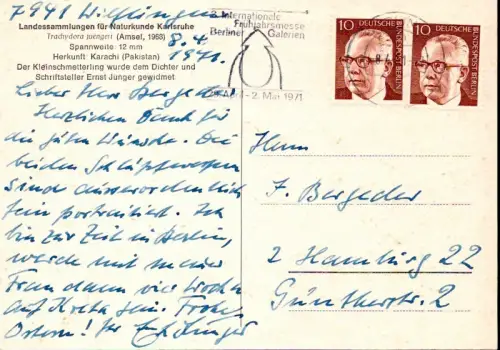 7941 Wilflingen
8.4.
1971.
Landessammlungen für Naturkunde Karlsruhe
Trachydora juengeri (Amsel, 1968)
Spannweite: 12 mm
Herkunft: Karachi (Pakistan)
Der Kleinschmetterling wurde dem Dichter und
Schriftsteller Ernst Jünger gewidmet
Lieber Herr Bergeder!
Herzlichen Dank für
die guten Wünsche. Die
beiden Schlupfwespen
sind ausserordentlich
fein portraitiert. Ich
bin zur Zeit in Berlin,
werde mit meiner
Frau dann vier Wochen
auf Kreta sein. Frohe
Ostern! Ihr E. Jünger
Internationale
Frühjahrsmesse
Berliner Galerien
- 2. Mai 1971
10
DEUTSCHE BUNDESPOST BERLIN
10
DEUTSCHE BUNDESPOST BERLIN
Herrn
F. Bergeder
2 Hamburg 22
Güntherstr. 2